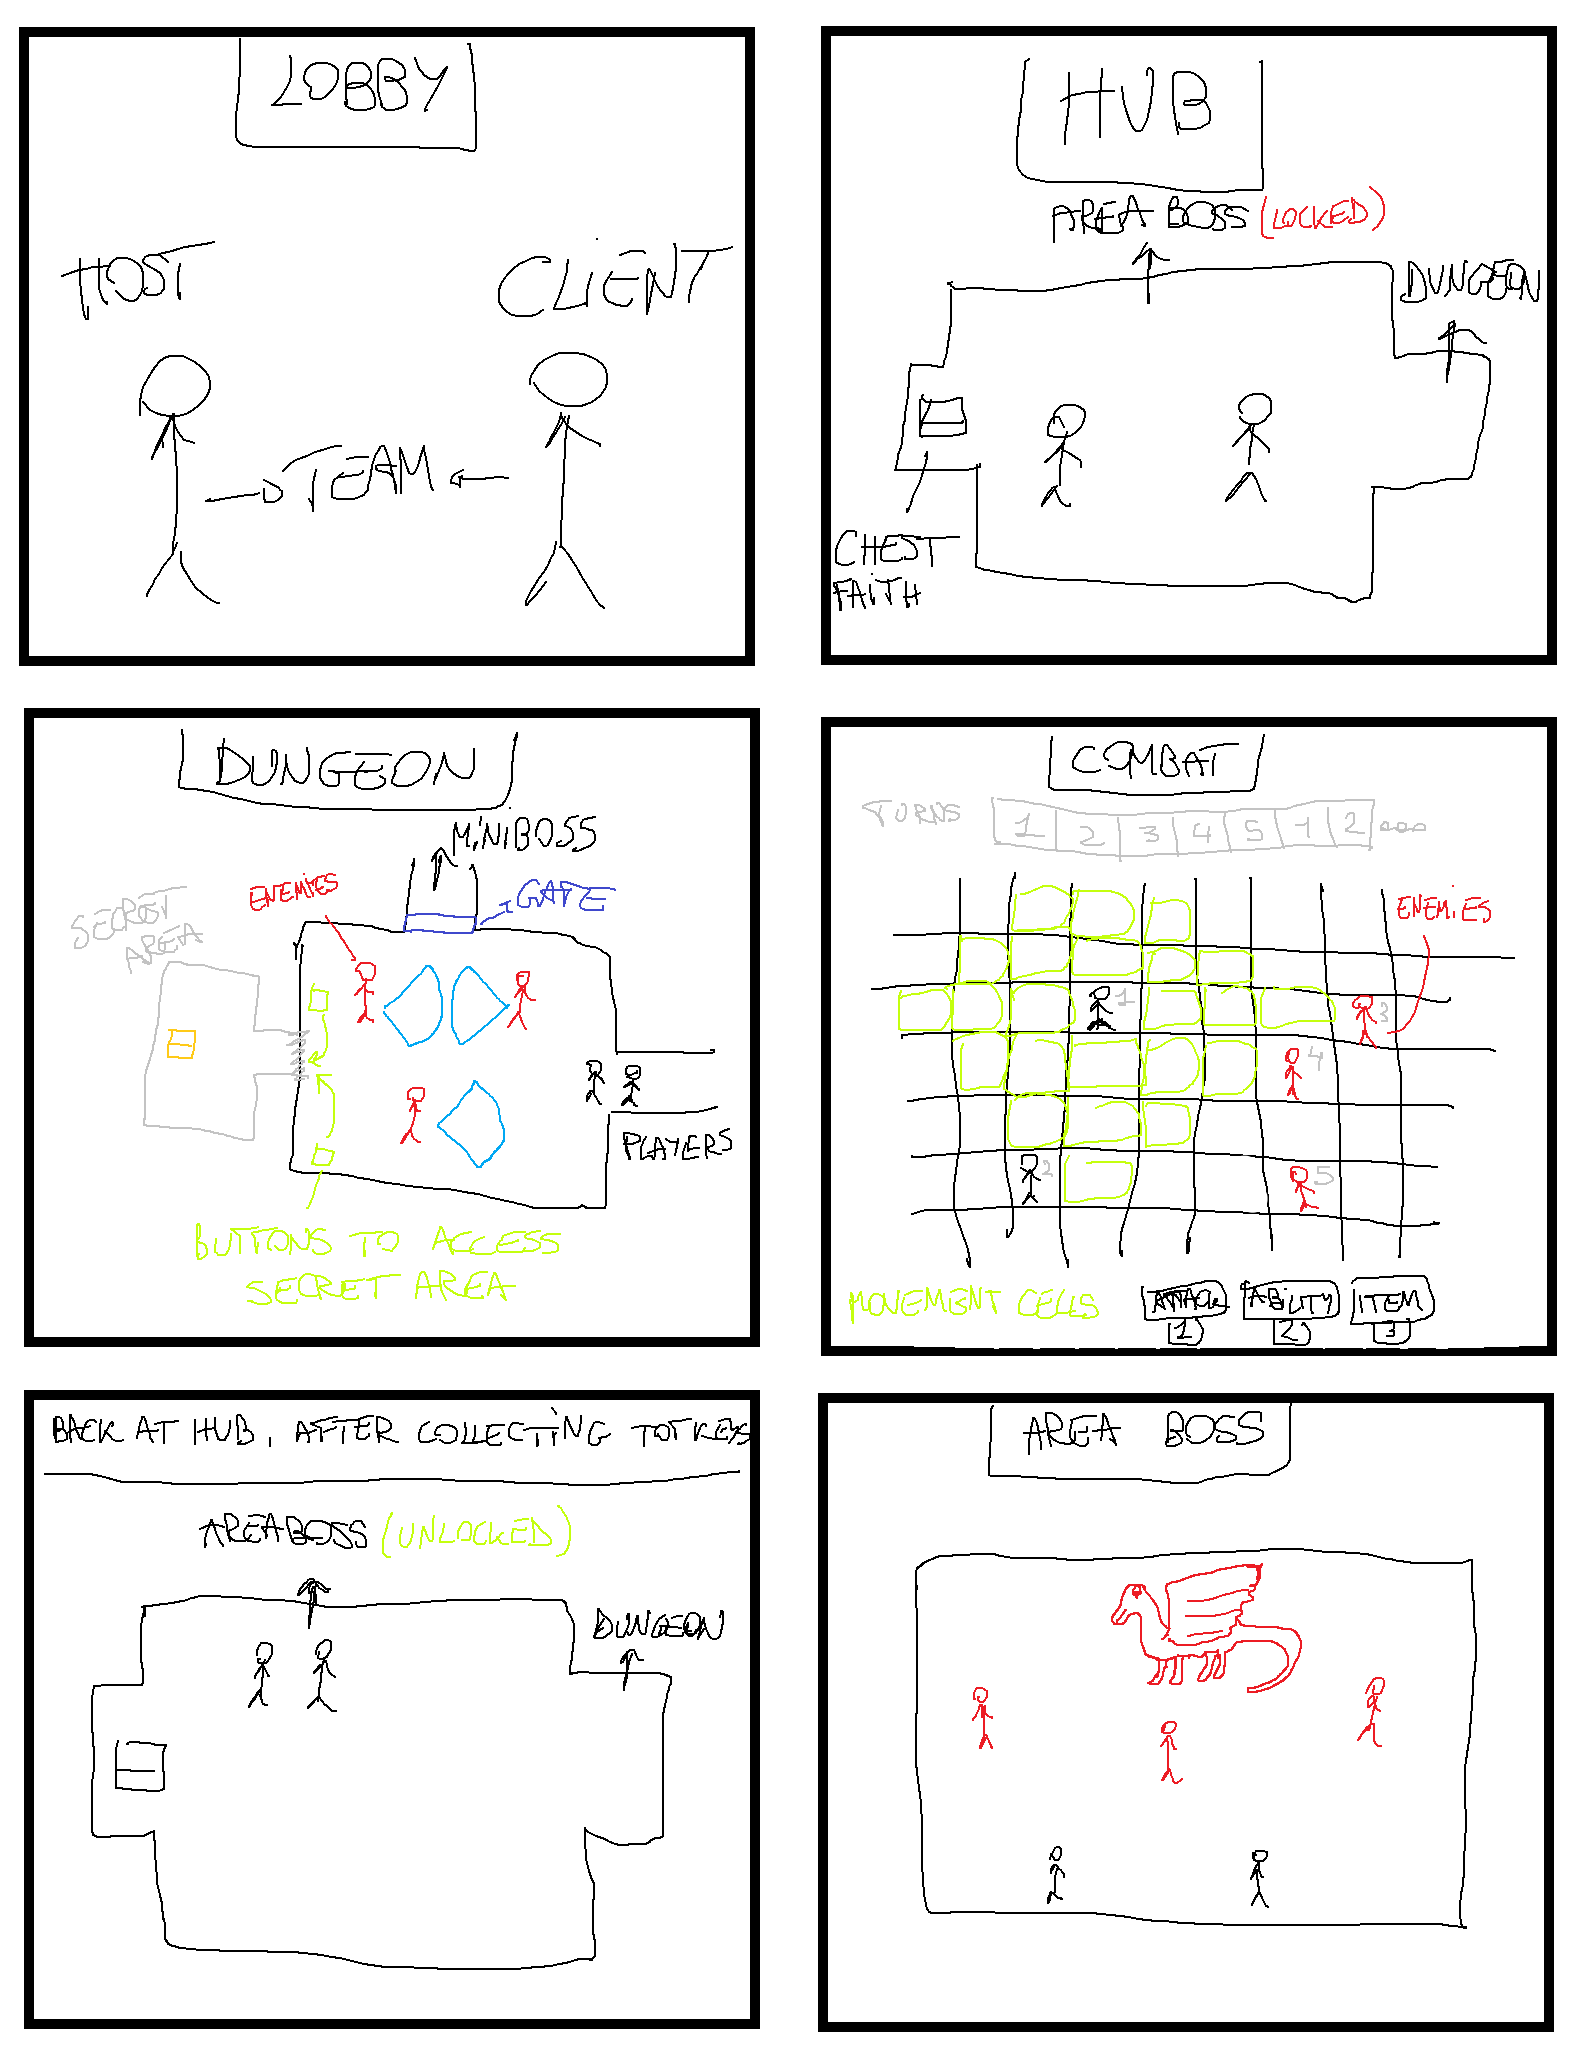 LOBBY
HOST
CLIENT
TEAM
HUB
AREA BOSS (LOCKED)
DUNGEON
CHEST
FAITH
DUNGEON
MINIBOSS
ENEMIES
GATE
SECRET
AREA
PLAYERS
BUTTONS TO ACCESS
SECRET AREA
COMBAT
TURNS 1 2 3 4 5 1 2 ...
ENEMIES
1
3
4
2
5
MOVEMENT CELLS
ATTACK ABILITY ITEM
1 2 3
BACK AT HUB, AFTER COLLECTING TOT KEYS
AREA BOSS (UNLOCKED)
DUNGEON
AREA BOSS